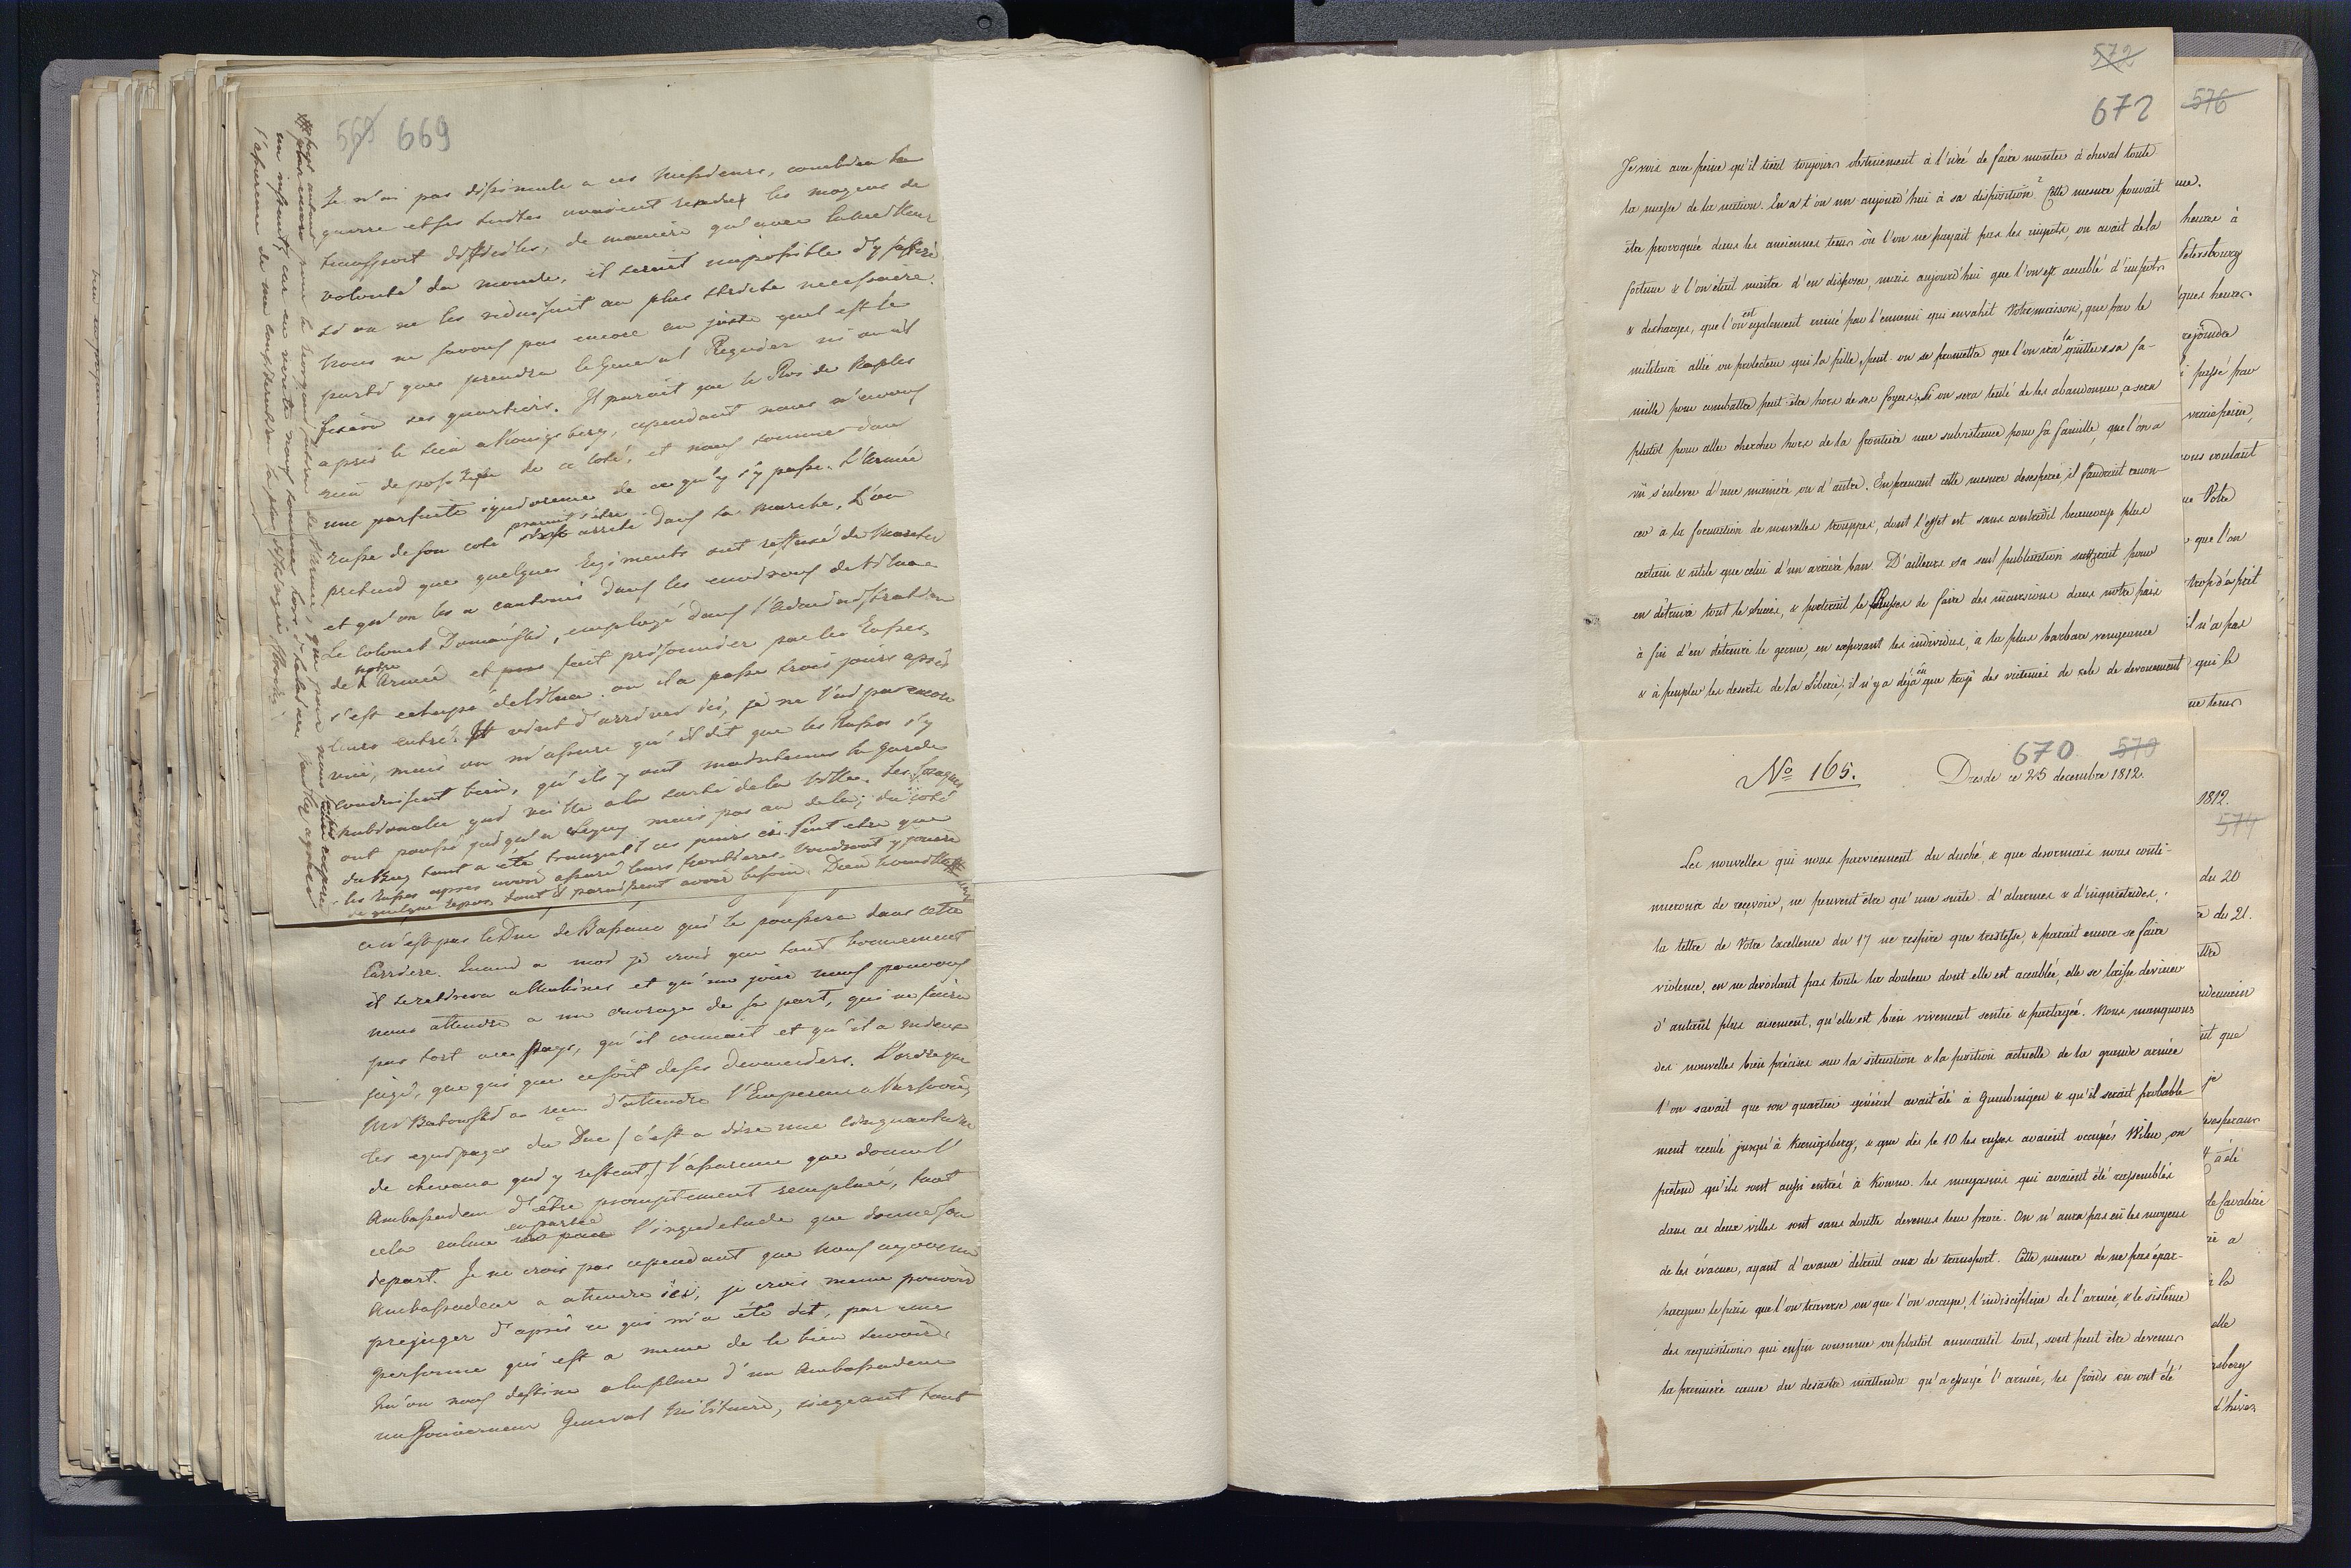 569 669
Je n'ai pas dissimulé a ces Messieurs, combien la
guerre et ses suites avaient rendu les moyens de
transport difficiles, de manière qu'avec la meilleur
volonté du monde, il serait impossible d'y suffire
si on ne les reduisait au plus stricte necessaire.
Nous ne savons pas encore au juste quel est le
parti que prendra le General Regnier ni ou il
fixera ses quartiers. Il parait que le Roi de Naples
a pris le sien a Konigsberg, cependant nous n'avons
rien de positif de ce coté, et nous sommes dans
une parfaite ignorance de ce qu'il s'y passe. L'Armée
russe de son coté parait s'être arreté dans sa marche. L'on
pretend que quelques Regiments ont reffusé de marcher
et qu'on les a cantonnés dans les environs de Vilna
Le Colonel Domański, employé dans l'Administration
de notre Armée et pris fait prisonnier par les Russes,
s'est echappé de Vilna ou il a passé trois jours après
leurs entré. Il vient d'arriver ici, je ne l'ai pas encore
vu, mais on m'assure qu'il dit que les Russes s'y
conduisent bien, qu'ils y ont maintenus la garde
nationale qui veille a la sureté de la Ville. Les Cosaques
ont poussé jusqu'a mais pas au dela; du coté
du Bug tout a été tranquil ces jours ci. Peut etre que
les Russes apres avoir assuré leurs frontieres, voudront y jouir
de quelque repos, dont il paraissent avoir besoin. Dieu
ce n'est pas le Duc de Bassano qui le poussera dans cette
Carriere. Quand a moi je crois que tout bonnement
il se retirera a Malines et qu'un jour nous pouvons
nous attendre a un ouvrage de sa part, qui ne fera
pas tort au Pays, qu'il connait et qu'il a mieux
jugé, que qui que ce soit de ses devanciers. L'ordre que
Mr Batowski a reçu d'attendre l'Empereur a Varsovie,
les equipages du Duc / c'est a dire une cinquantaine
de chevaux qui y restent / l'assurance que donne l'
Ambassadeur d'être promptement remplacé, tout
cela calme en partie l'inquietude que donne son
depart. Je ne crois pas cependant que nous ayons un
Ambassadeur a attendre ici, je crois meme pouvoir
prejuger d'après ce qui m'a été dit, par une
personne qui est a meme de le bien savoir,
qu'on nous destine a la place d'un Ambassadeur
un Gouverneur General Militaire, siegeant tout
572
672
Je vois avec peine qu'il tient toujours obstinément à l'idée de faire monter à cheval toute
la masse de la nation. En a t'on un aujourd'hui à sa disposition? Cette mesure pouvait
être provoquée dans les anciennes tems où l'on ne payait pas les impots, on avait de la
fortune & l'on était maitre d'en disposer, mais aujourd'hui que l'on est accablé d'impots
& de charges, que l'on est egalement ruiné par l'ennemi qui envahit Votre maison, que par le
militaire allié ou protecteur qui la pille, peut-on se promettre que l'on ira la quitter & sa fa-
mille pour combattre peut être hors de ses foyers. Si on sera tenté de les abandonner, ce sera
plutot pour aller chercher hors de la frontiere une subsistance pour sa famille, que l'on a
vu s'enlever d'une maniere ou d'autre. En prenant cette mesure desesperée, il faudrait renon-
cer à la formation de nouvelles trouppes, dont l'effet est sans contredit beaucoup plus
certain & utile que celui d'un arrière ban. D'ailleurs sa seul publication suffirait pour
en détruire tout le succès, & porterait les Russes de faire des incursions dans notre païs
à fin d'en détruire le germe, en exposant les individus, à la plus barbare vengeance
& à peupler les deserts de la Siberie; il n'y a déjà eu que trop des victimes de zele & de devouement
670 570
No 165.
Dresde ce 25 decembre 1812.
Les nouvelles qui nous parviennent du duché, & que desormais nous conti-
nuerons de reçevoir, ne peuvent être qu'une suite d'alarmes & d'inquietudes;
la lettre de Votre Excellence du 17 ne respire que tristesse, & parait encore se faire
violence, en ne devoilant pas toute la douleur dont elle est accablée, elle se laisse deviner
d'autant plus aisement, qu'elle est bien vivement sentie & partagée. Nous manquons
des nouvelles bien précises sur la situation & la position actuelle de la grande armée
l'on savait que son quartier général avait été à Gumbingen & qu'il serait probable
ment reculé jusqu'à Kœnigsberg, & que dès le 10 les russes avaient occupés Wilna, on
pretend qu'ils sont aussi entrés à Kowno. les magasins qui avaient été rassemblés
dans ces deux villes sont sans doutte devenus leur proie. On n'aura pas eû les moyens
de les évacuer, ayant d'avance détruit ceux de transport. Cette mesure de ne pas épar-
le païs que l'on traverse ou que l'on occupe, l'indiscipline de l'armée, & le sistême
des requisitions qui enfin consume ou plutot anneantit tout, sont peut être devenus
la premiere cause du desastre inattendu qu'a essuyé l'armée, les froids en ont été
576
me.
heure à
Petersbourg
ques heures
rejoindre
passé par
vraie peine,
ous voulant
ue Votre
que l'on
trop d'esprit
il n'a pas
qui le
ue tems
1812.
574
du 20
du 21.
ut que
je
a été
de Cavalerie
ie a
à la
elle
nsberg
d'hiver